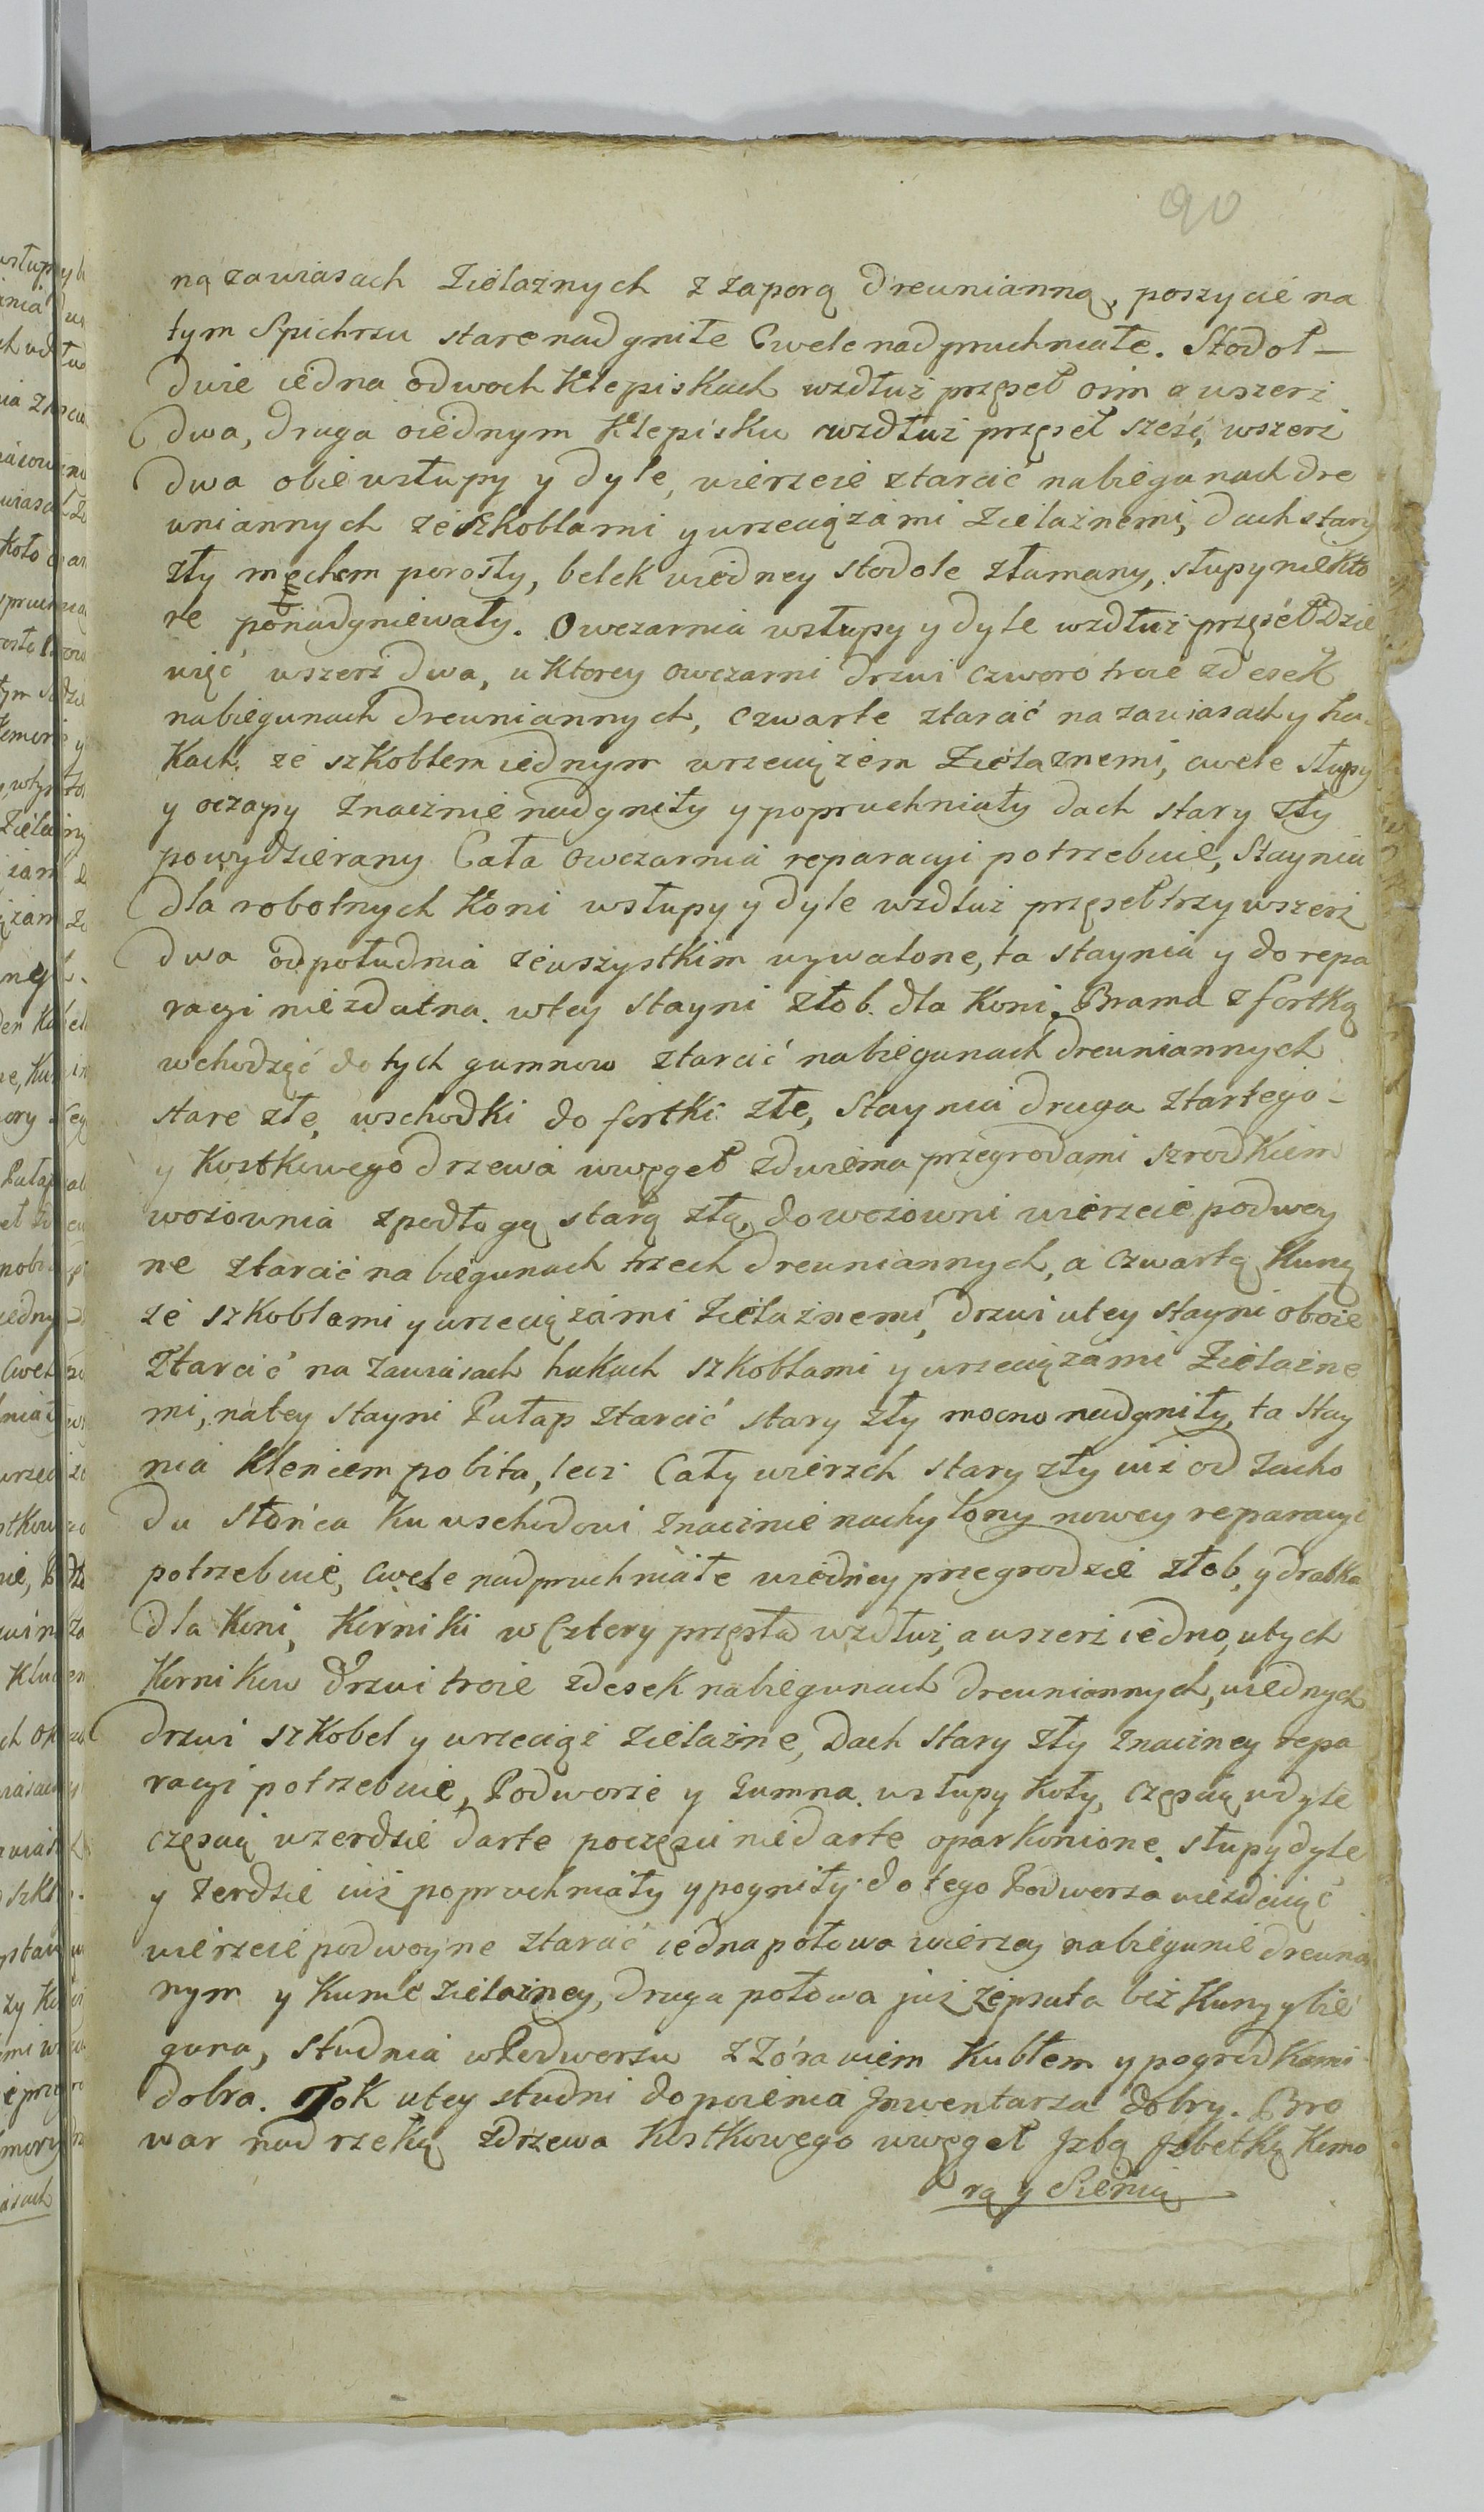 90
ną zawiasach Żielaznych z zaporą Drewnianną, poszycie na
tym Spichrzu stare nadgniłe Cwele nadpruchniałe. Stodoł —
dwie iedna odwoch Klepiskach wzdłuż przęseł osm a wszerz
dwa, druga oiednym Klepisku wzdłuż przęseł sześć, wszerz
dwa obie wsłupy y dyle, wierzeie ztarcić nabiegunach dre
wniannych ze szkoblami y wrzeciązami Żielaznemi, dach stary
zły męchem porosły, belek wiedney stodole złamany, słupy niekto
re ponadgniewały. Owczarnia wsłupy y dyle wzdłuż przęseł dzie
więć wszerz dwa, u Ktorey owczarni drzwi czworo troie zdesek
nabiegunach drewniannych, czwarte ztarcić na zawiasach y ha
kach ze szkoblem iednym wrzeciązem Żielaznemi, cwele słupy
y oczapy znacznie nadgniły y popruchniały dach stary zły
powydzierany Cała owczarnia reparacyi potrzebuie, Staynia
dla robotnych Koni wsłupy y dyle wzdłuż przęseł trzy wszerz
dwa odpołudnia zewszystkim wywalone, ta staynia y do repa
racyi niezdatna. wtey stayni złob dla Koni. Brama z fortką
wchodzęć do tych gumnow ztarcić nabiegunach drewniannych
stare złe, wschodki do fortki złe, Staynia druga ztartego
y Kostkowego drzewa wwęgeł zdwiema przegrodami szrodkiem
wozownia zpodłogą starą złą, do wozowni wierzeie podwoy
ne ztarcić na biegunach trzech drewniannych, a czwartą Kuną
ze szkoblami y wrzeciązami Żielaznemi, drzwi utey stayni oboie
ztarcić na zawiasach hakach szkoblami y wrzeciązami Żielazne
mi, natey stayni Pułap ztarcić stary zły mocno nadgniły, ta stay
nia Kleńcem pobita, lecz Cały wierzch stary zły iuż od zacho
du Słońca Ku wschodowi znacznie nachylony nowey reparacyi
potrzebuie, Cwele nadpruchniałe wiedney przegrodzie złob, y drabka
dla Koni, Kurniki w Cztery przęsła wzdłuż, a wszerz iedno, utych
Kurnikow drzwi troie zdesek nabiegunach drewniannych, uiednych
drzwi szkobel y wrzeciąż żielazne, Dach stary zły znaczney repa
racyi potrzebuie, Podworze y Gumna wsłupy Koły, częścią wdyle
częścią wzerdzie darte poczęści niedarte oparkonione. słupy dyle
y zerdzie iuż popruchniały y pogniły. do tego Podworza wiezdżaiąc
wierzeie podwoyne ztarcić iedna połowa wierzey nabiegunie drewnia
nym y Kunie żielazney, druga połowa już zepsuta bez Kuny y bie
guna, studnia wPodworzu z Żórawiem Kubłem y pogrodkami
dobra. Tok utey studni do poienia Jnwentarza dobry. Bro
war nad rzeką zdrzewa Kostkowego wwęgeł Jzbą Jzbetką Komo
rą y Sienią